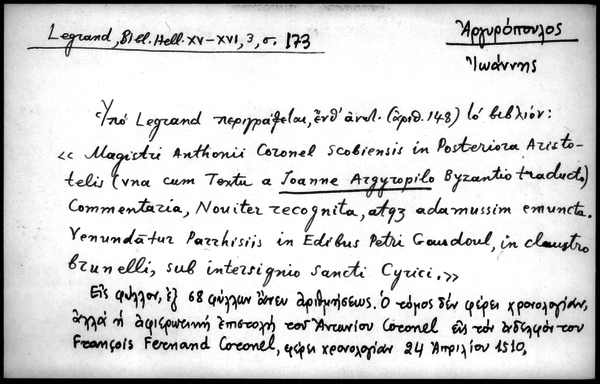 Legrand, Bibl. Hell. XV-XVI, 3, σ. 173
Ἀργυρόπουλος
Ἰωάννης
Ὑπό Legrand περιγράφεται, ἐνθ' ἀνωτ. (ἀριθ. 148) τό βιβλίον:
« Magistri Anthonii Coronel Scobiensis in Posteriora Aristo-
telis (vna cum Textu a Joanne Argyropilo Byzantio traducto)
Commentaria, Nouiter recognita, atqz adamussim emuncta.
Venundātur Parrhisiis in Edibus Petri Gaudoul, in claustro
brunelli, sub intersignio sancti Cyrici. »
Εἰς φύλλον, ἐξ 68 φύλλων ἄνευ ἀριθμήσεως. Ὁ τόμος δέν φέρει χρονολογίαν,
ἀλλά ἡ ἀφιερωτική ἐπιστολή τοῦ Ἀντωνίου Coronel εἰς τόν ἀδελφόν του
François Fernand Coronel, φέρει χρονολογίαν 24 Ἀπριλίου 1510,